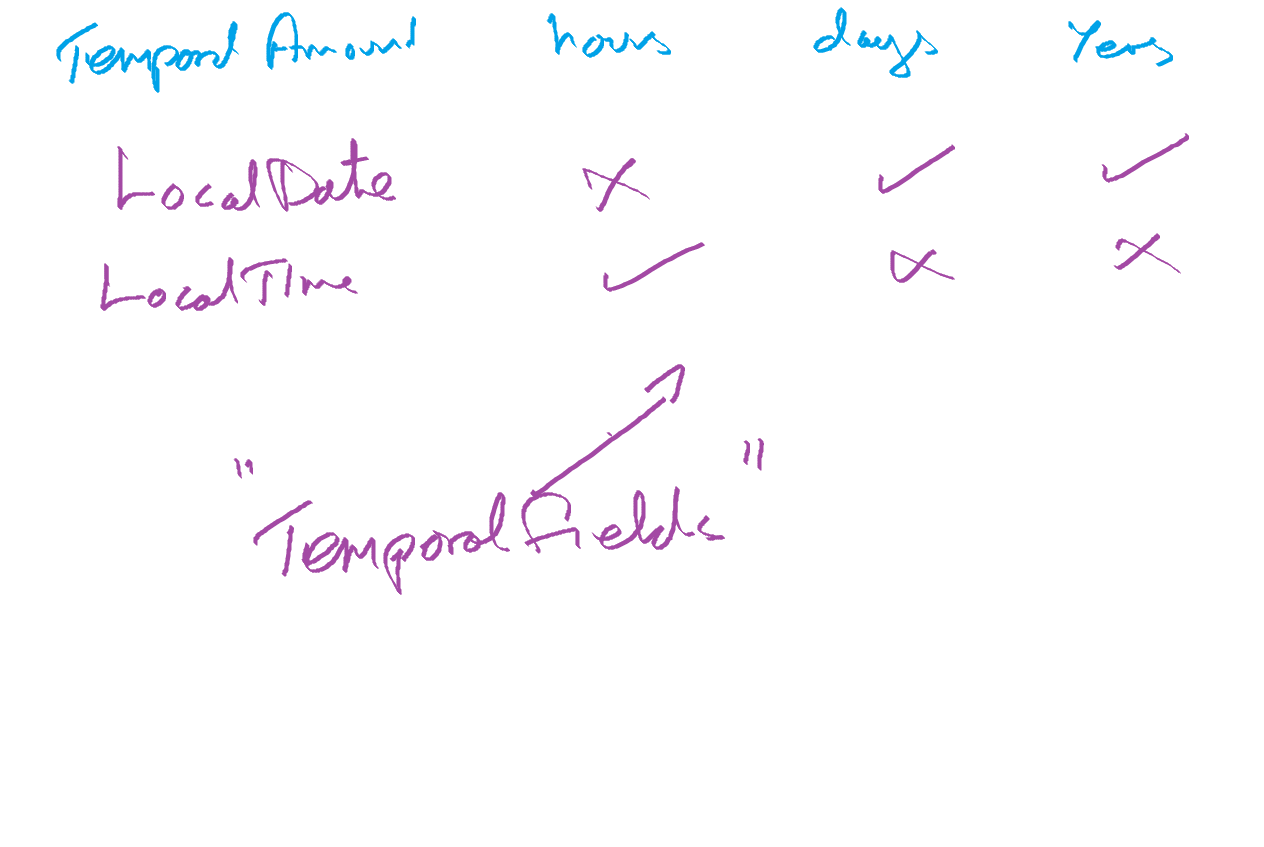 Temporal Amount hours days Years
LocalDate x ✓ ✓
LocalTime ✓ x x
"Temporal Fields"